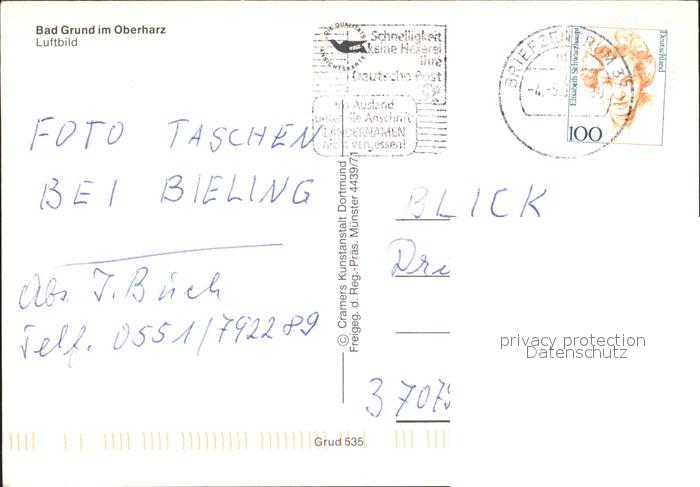 Bad Grund im Oberharz
Luftbild
DIE QUALITÄTS
ANSICHTSKARTE
Schnelligkeit
keine Hexerei
Ihre
Deutsche Post
Im Ausland
unter die Anschrift
LÄNDERNAMEN
nicht vergessen!
BRIEFZENTRUM 37
Elisabeth Schwarzhaupt
Deutschland
100
FOTO TASCHEN
BEI BIELING
Abs. J. Büch
Telf. 0551/792289
© Cramers Kunstanstalt Dortmund
Freigeg. d. Reg.-Präs. Münster 4439/71
BLICK
Dri
37075
privacy protection
Datenschutz
Grud 535